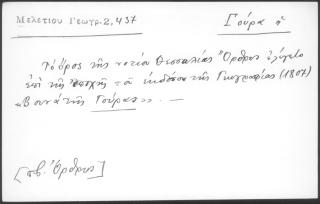 Μελετίου Γεωγρ. 2, 437
Γούρα ἡ
Τὸ ὄρος τῆς νοτίου Θεσσαλίας Ὄρθρυς ἐλέγετο
ἐπὶ τῆς ἐποχῆς τοῦ ἐκδότου τῆς Γεωγραφίας (1807)
«Βουνὰ τῆς Γούρας». —
[πβ. Ὄρθρυς]